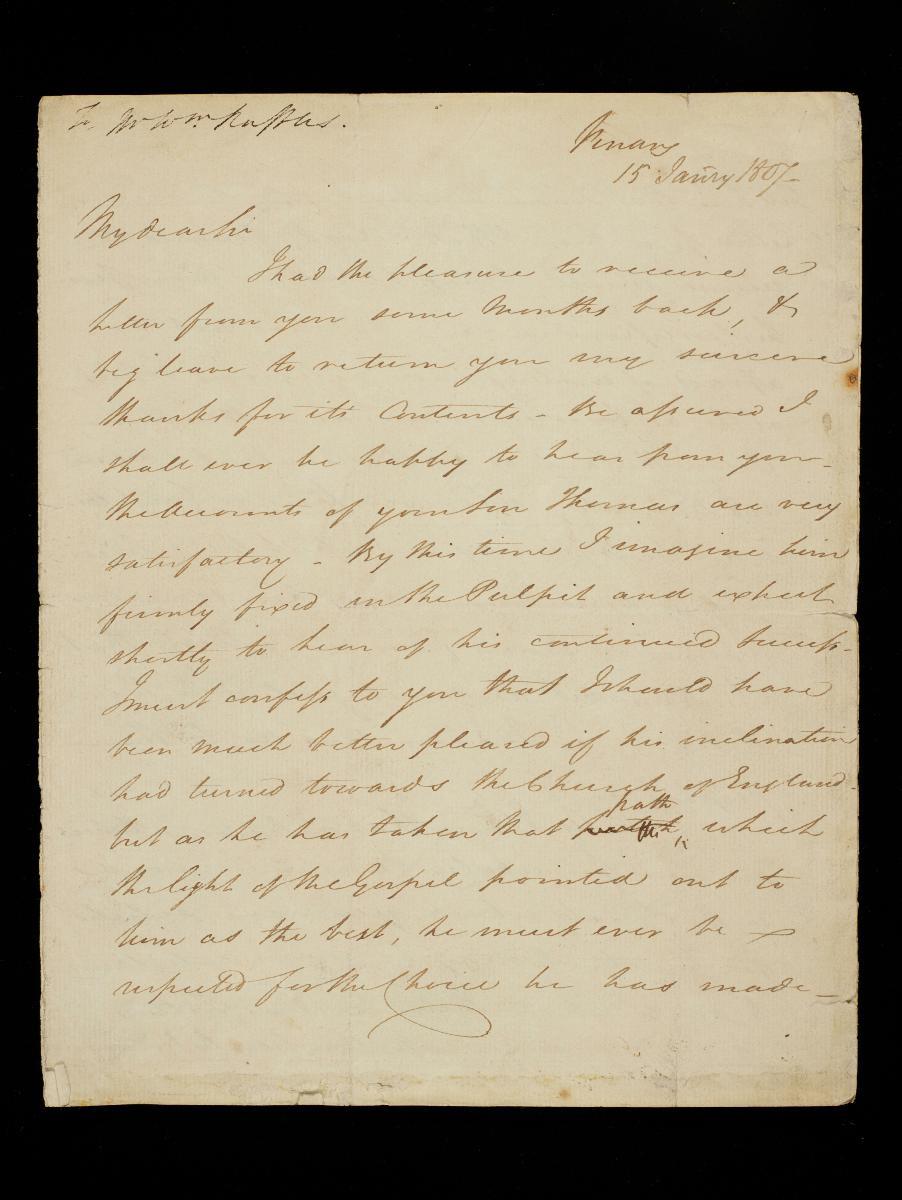 To Mr Wm Raffles.
Penang
15 Janry 1807-
My dear Sir
I had the pleasure to receive a
letter from you some Months back, &
beg leave to return you my sincere
thanks for its Contents - Be assured I
shall ever be happy to hear from you -
the Accounts of your Son Thomas are very
satisfactory - By this time I imagine him
firmly fixed in the Pulpit and expect
shortly to hear of his continued Success -
I must confess to you that I should have
been much better pleased if his inclination
had turned towards the Church of England -
but as he has taken that path, which
the light of the Gospel pointed out to
him as the best, he must ever be
respected for the Choice he has made -